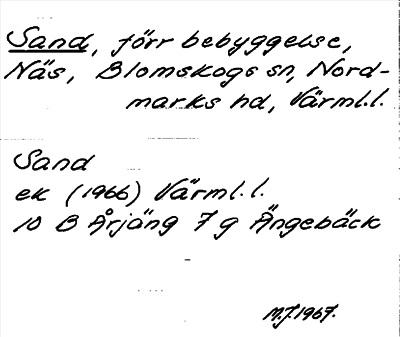 Sand, förr bebyggelse,
Näs, Blomskogs sn, Nord-
marks hd, Värml.l.
Sand
ek (1966) Värml.l.
10 B Årjäng 7 g Ängebäck
M.J.1967.